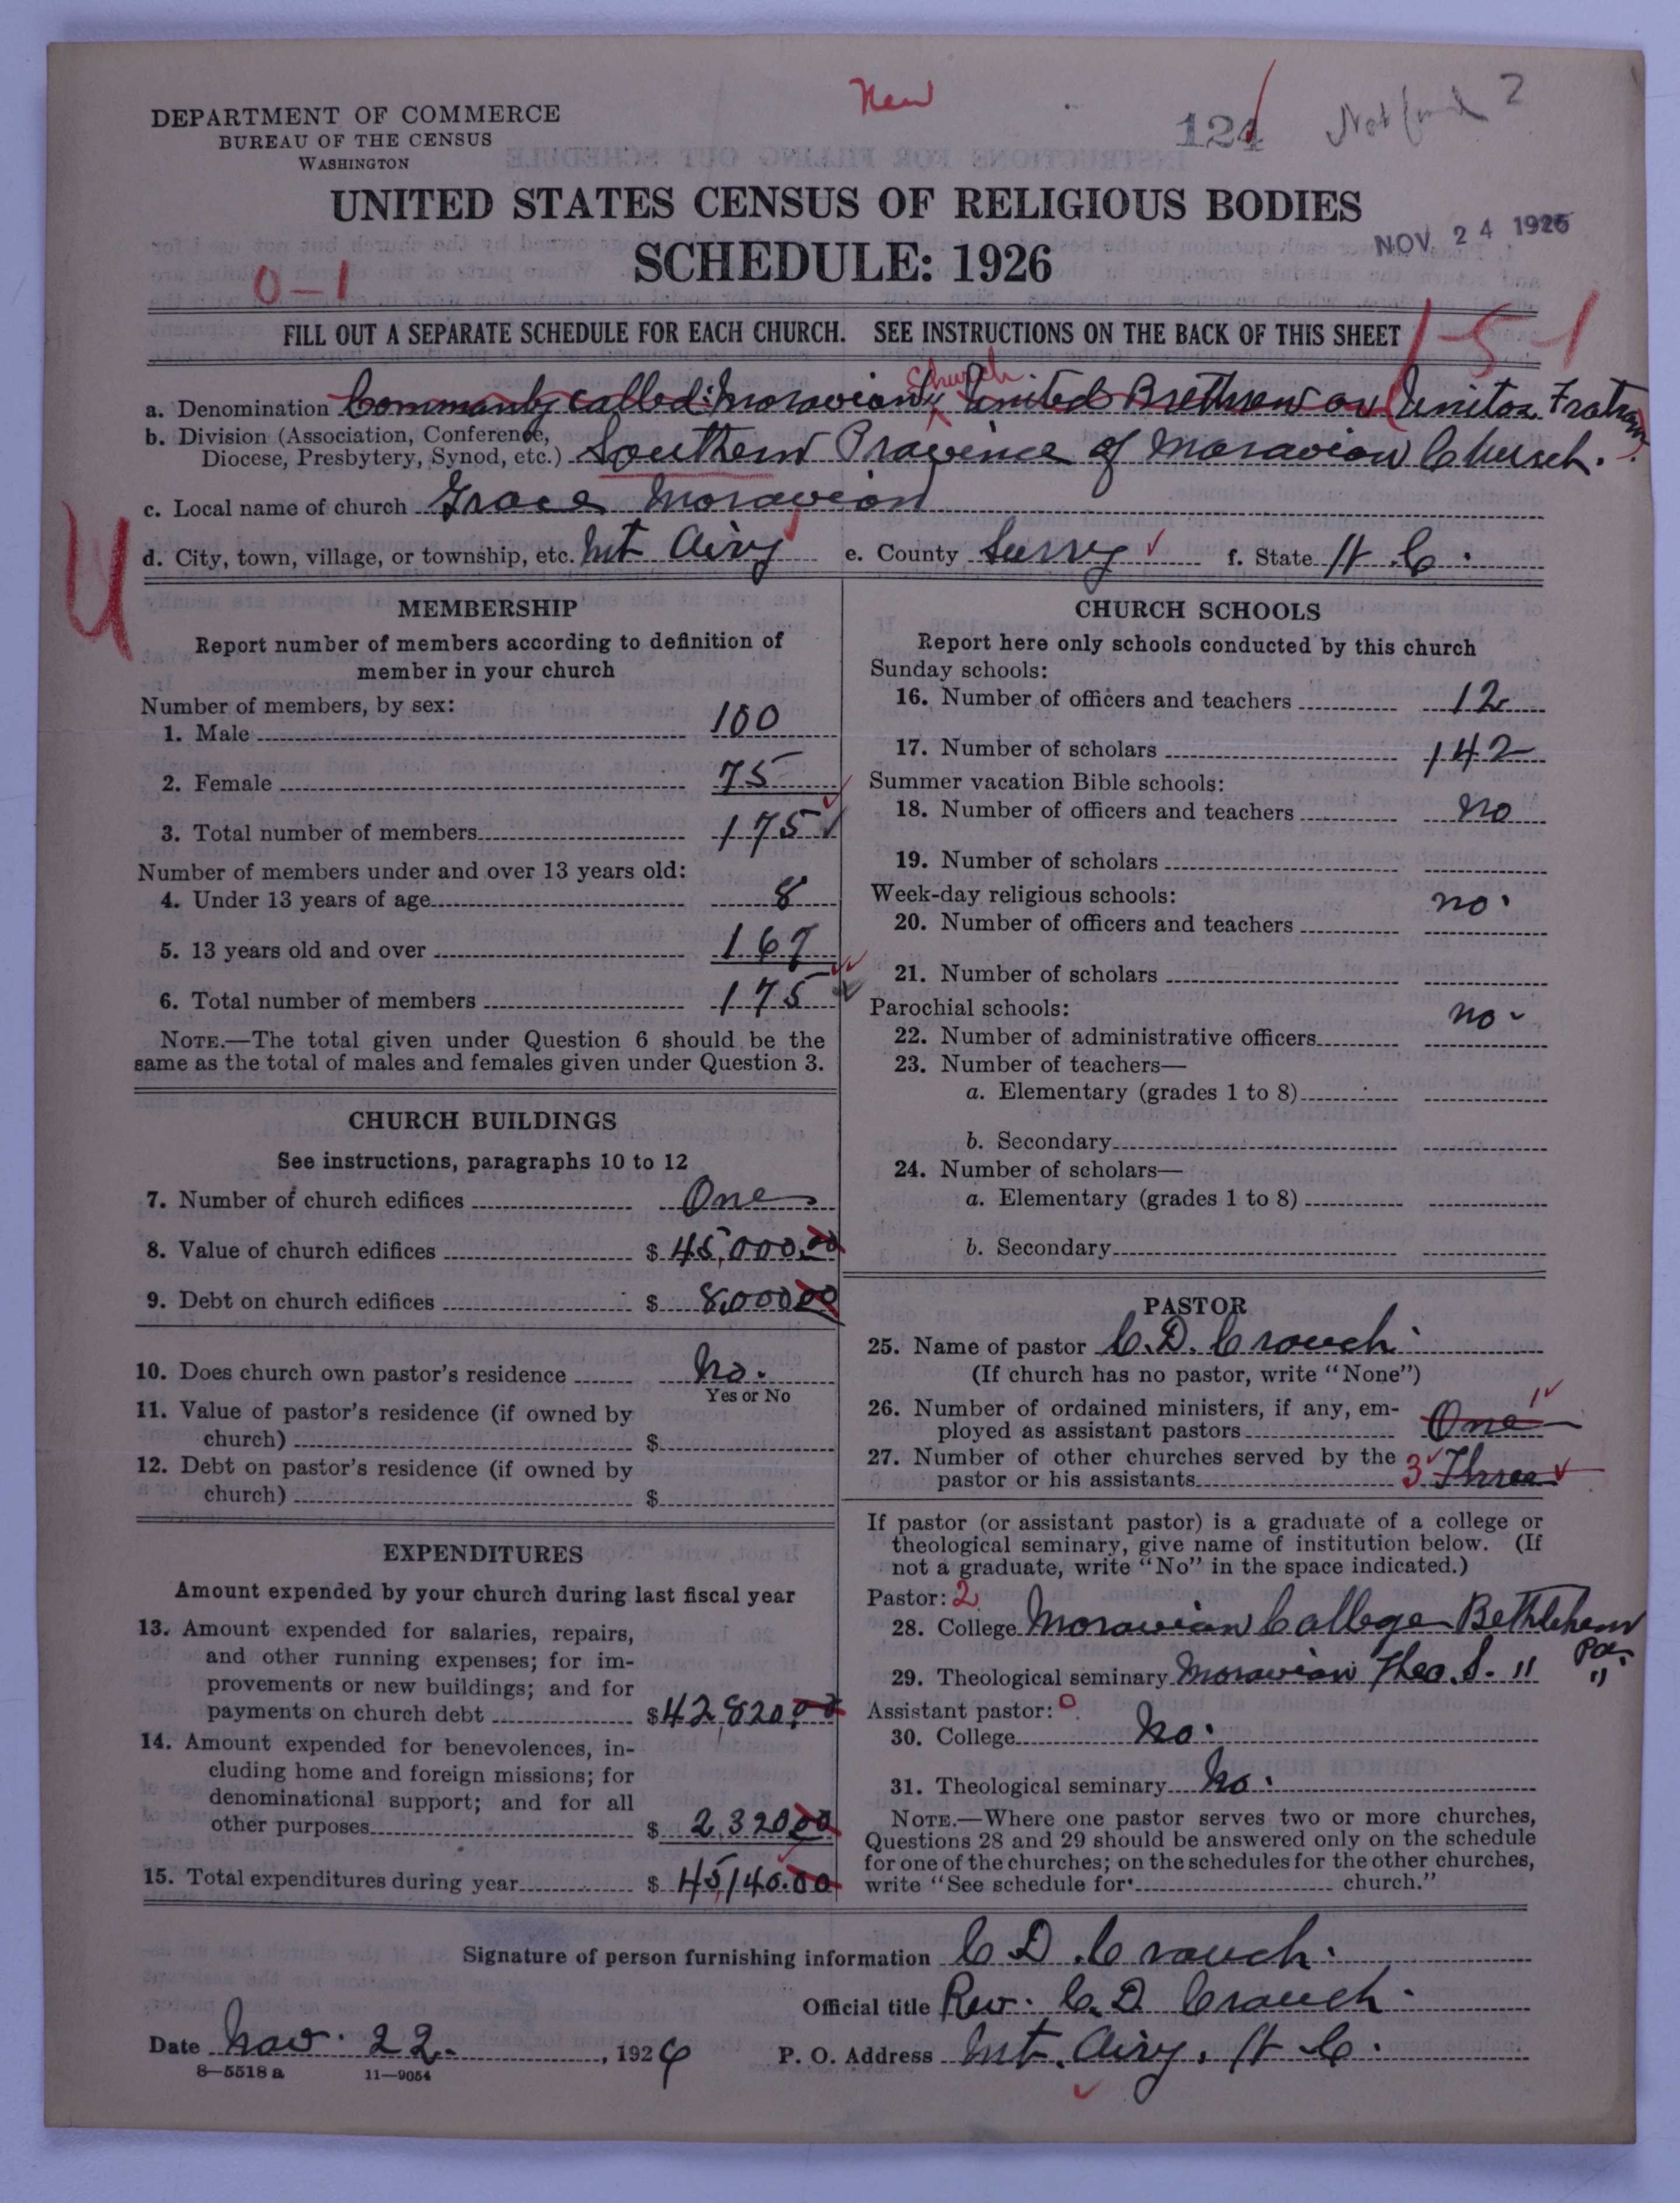 New
124
Not found 2
DEPARTMENT OF COMMERCE
BUREAU OF THE CENSUS
WASHINGTON
UNITED STATES CENSUS OF RELIGIOUS BODIES
SCHEDULE: 1926
NOV. 24 1926
0-1
FILL OUT A SEPARATE SCHEDULE FOR EACH CHURCH. SEE INSTRUCTIONS ON THE BACK OF THIS SHEET
1-5-1
Church
a. Denomination Commonly called: Moravian, United Brethren or Unitas Fratrum
b. Division (Association, Conference,
Diocese, Presbytery, Synod, etc.) Southern Province of Moravian Church.
c. Local name of church Grace Moravian
d. City, town, village, or township, etc. Mt Airy e. County Surry f. State N.C.
MEMBERSHIP
Report number of members according to definition of
member in your church
Number of members, by sex:
1. Male 100
2. Female 75
3. Total number of members 175
Number of members under and over 13 years old:
4. Under 13 years of age 8
5. 13 years old and over 167
6. Total number of members 175
NOTE.—The total given under Question 6 should be the
same as the total of males and females given under Question 3.
CHURCH BUILDINGS
See instructions, paragraphs 10 to 12
7. Number of church edifices One
8. Value of church edifices $ 45,000.00
9. Debt on church edifices $ 8,00000
10. Does church own pastor's residence No.
Yes or No
11. Value of pastor's residence (if owned by
church) $
12. Debt on pastor's residence (if owned by
church) $
EXPENDITURES
Amount expended by your church during last fiscal year
13. Amount expended for salaries, repairs,
and other running expenses; for im-
provements or new buildings; and for
payments on church debt $ 42,820.00
14. Amount expended for benevolences, in-
cluding home and foreign missions; for
denominational support; and for all
other purposes $ 2,32000
15. Total expenditures during year $ 45,140.00
CHURCH SCHOOLS
Report here only schools conducted by this church
Sunday schools:
16. Number of officers and teachers 12
17. Number of scholars 142
Summer vacation Bible schools:
18. Number of officers and teachers No
19. Number of scholars
Week-day religious schools: no.
20. Number of officers and teachers
21. Number of scholars
Parochial schools: no-
22. Number of administrative officers
23. Number of teachers—
a. Elementary (grades 1 to 8)
b. Secondary
24. Number of scholars—
a. Elementary (grades 1 to 8)
b. Secondary
PASTOR
25. Name of pastor C.D. Crouch.
(If church has no pastor, write "None")
26. Number of ordained ministers, if any, em-
ployed as assistant pastors One 1
27. Number of other churches served by the
pastor or his assistants 3 Three
If pastor (or assistant pastor) is a graduate of a college or
theological seminary, give name of institution below. (If
not a graduate, write "No" in the space indicated.)
Pastor: 2
28. College Moravian College Bethlehem
Pa.
29. Theological seminary Moravian Theo. S. " "
Assistant pastor: 0
30. College No.
31. Theological seminary No.
NOTE.—Where one pastor serves two or more churches,
Questions 28 and 29 should be answered only on the schedule
for one of the churches; on the schedules for the other churches,
write "See schedule for church."
Signature of person furnishing information C D. Crouch.
Official title Rev. C. D. Crouch.
Date Nov. 22. , 1926 P. O. Address Mt. Airy, N C.
8—5518 a 11—9054